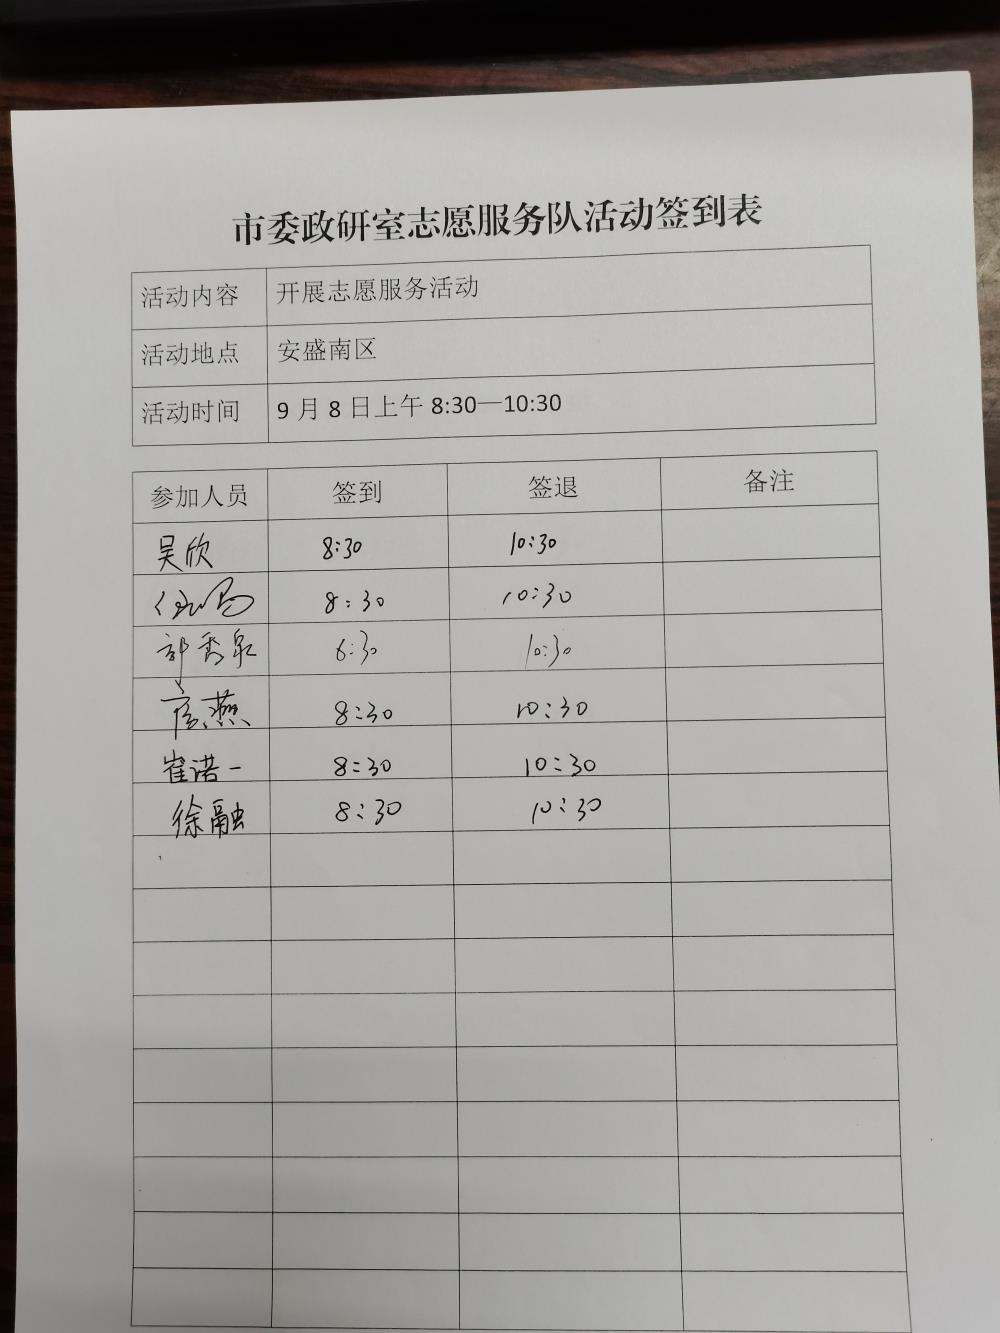 市委政研室志愿服务队活动签到表
活动内容 开展志愿服务活动
活动地点 安盛南区
活动时间 9月8日上午8:30—10:30
参加人员 签到 签退 备注
吴欣 8:30 10:30
8:30 10:30
郭秀泉 8:30 10:30
燕 8:30 10:30
崔诺一 8:30 10:30
徐融 8:30 10:30